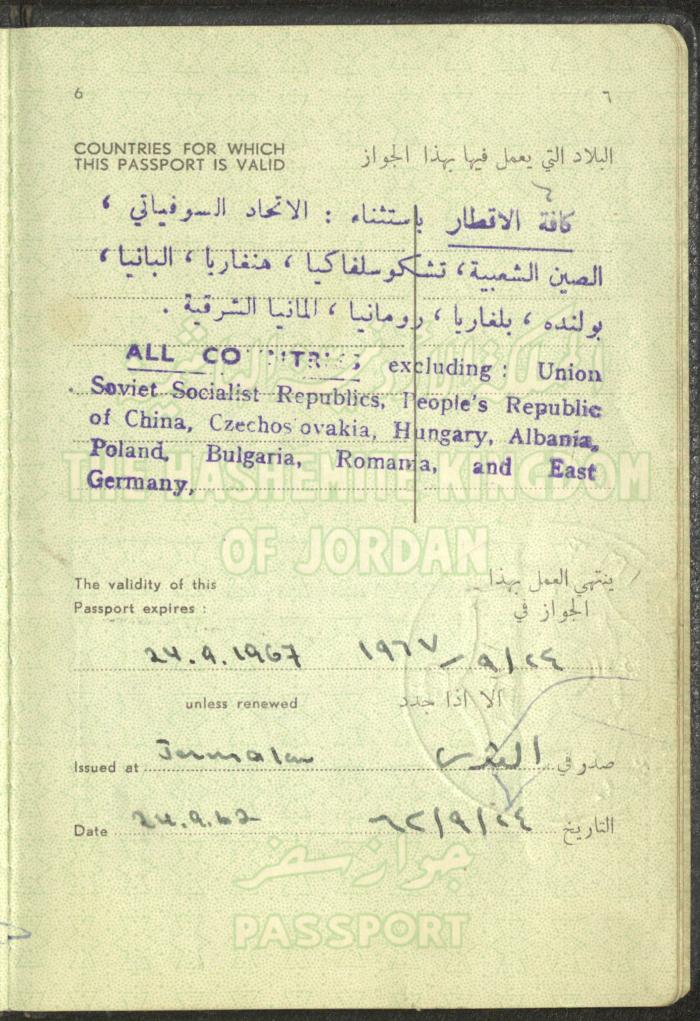 6 ٦
COUNTRIES FOR WHICH
THIS PASSPORT IS VALID
البلاد التي يعمل فيها بهذا الجواز
كافة الاقطار باستثناء : الاتحاد السوفياتي ،
الصين الشعبية، تشكوسلفاكيا ، هنغاريا ، البانيا ،
بولنده ، بلغاريا ، رومانيا ، المانيا الشرقية .
ALL CO NTRIES excluding : Union
Soviet Socialist Republics, People's Republic
of China, Czechos ovakia, Hungary, Albania,
Poland, Bulgaria, Romania, and East
Germany,
THE HASHEMITE KINGDOM
OF JORDAN
The validity of this
Passport expires :
ينتهي العمل بهذا
الجواز في
24.9.1967 ٢٤/٩/١٩٦٧
unless renewed الا اذا جدد
Issued at Jerusalem صدر في القدس
Date 24.9.62 التاريخ ٢٤/٩/٦٢
جواز سفر
PASSPORT